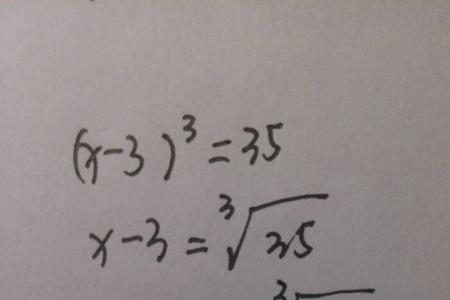 (x-3)³=35
x-3=∛35